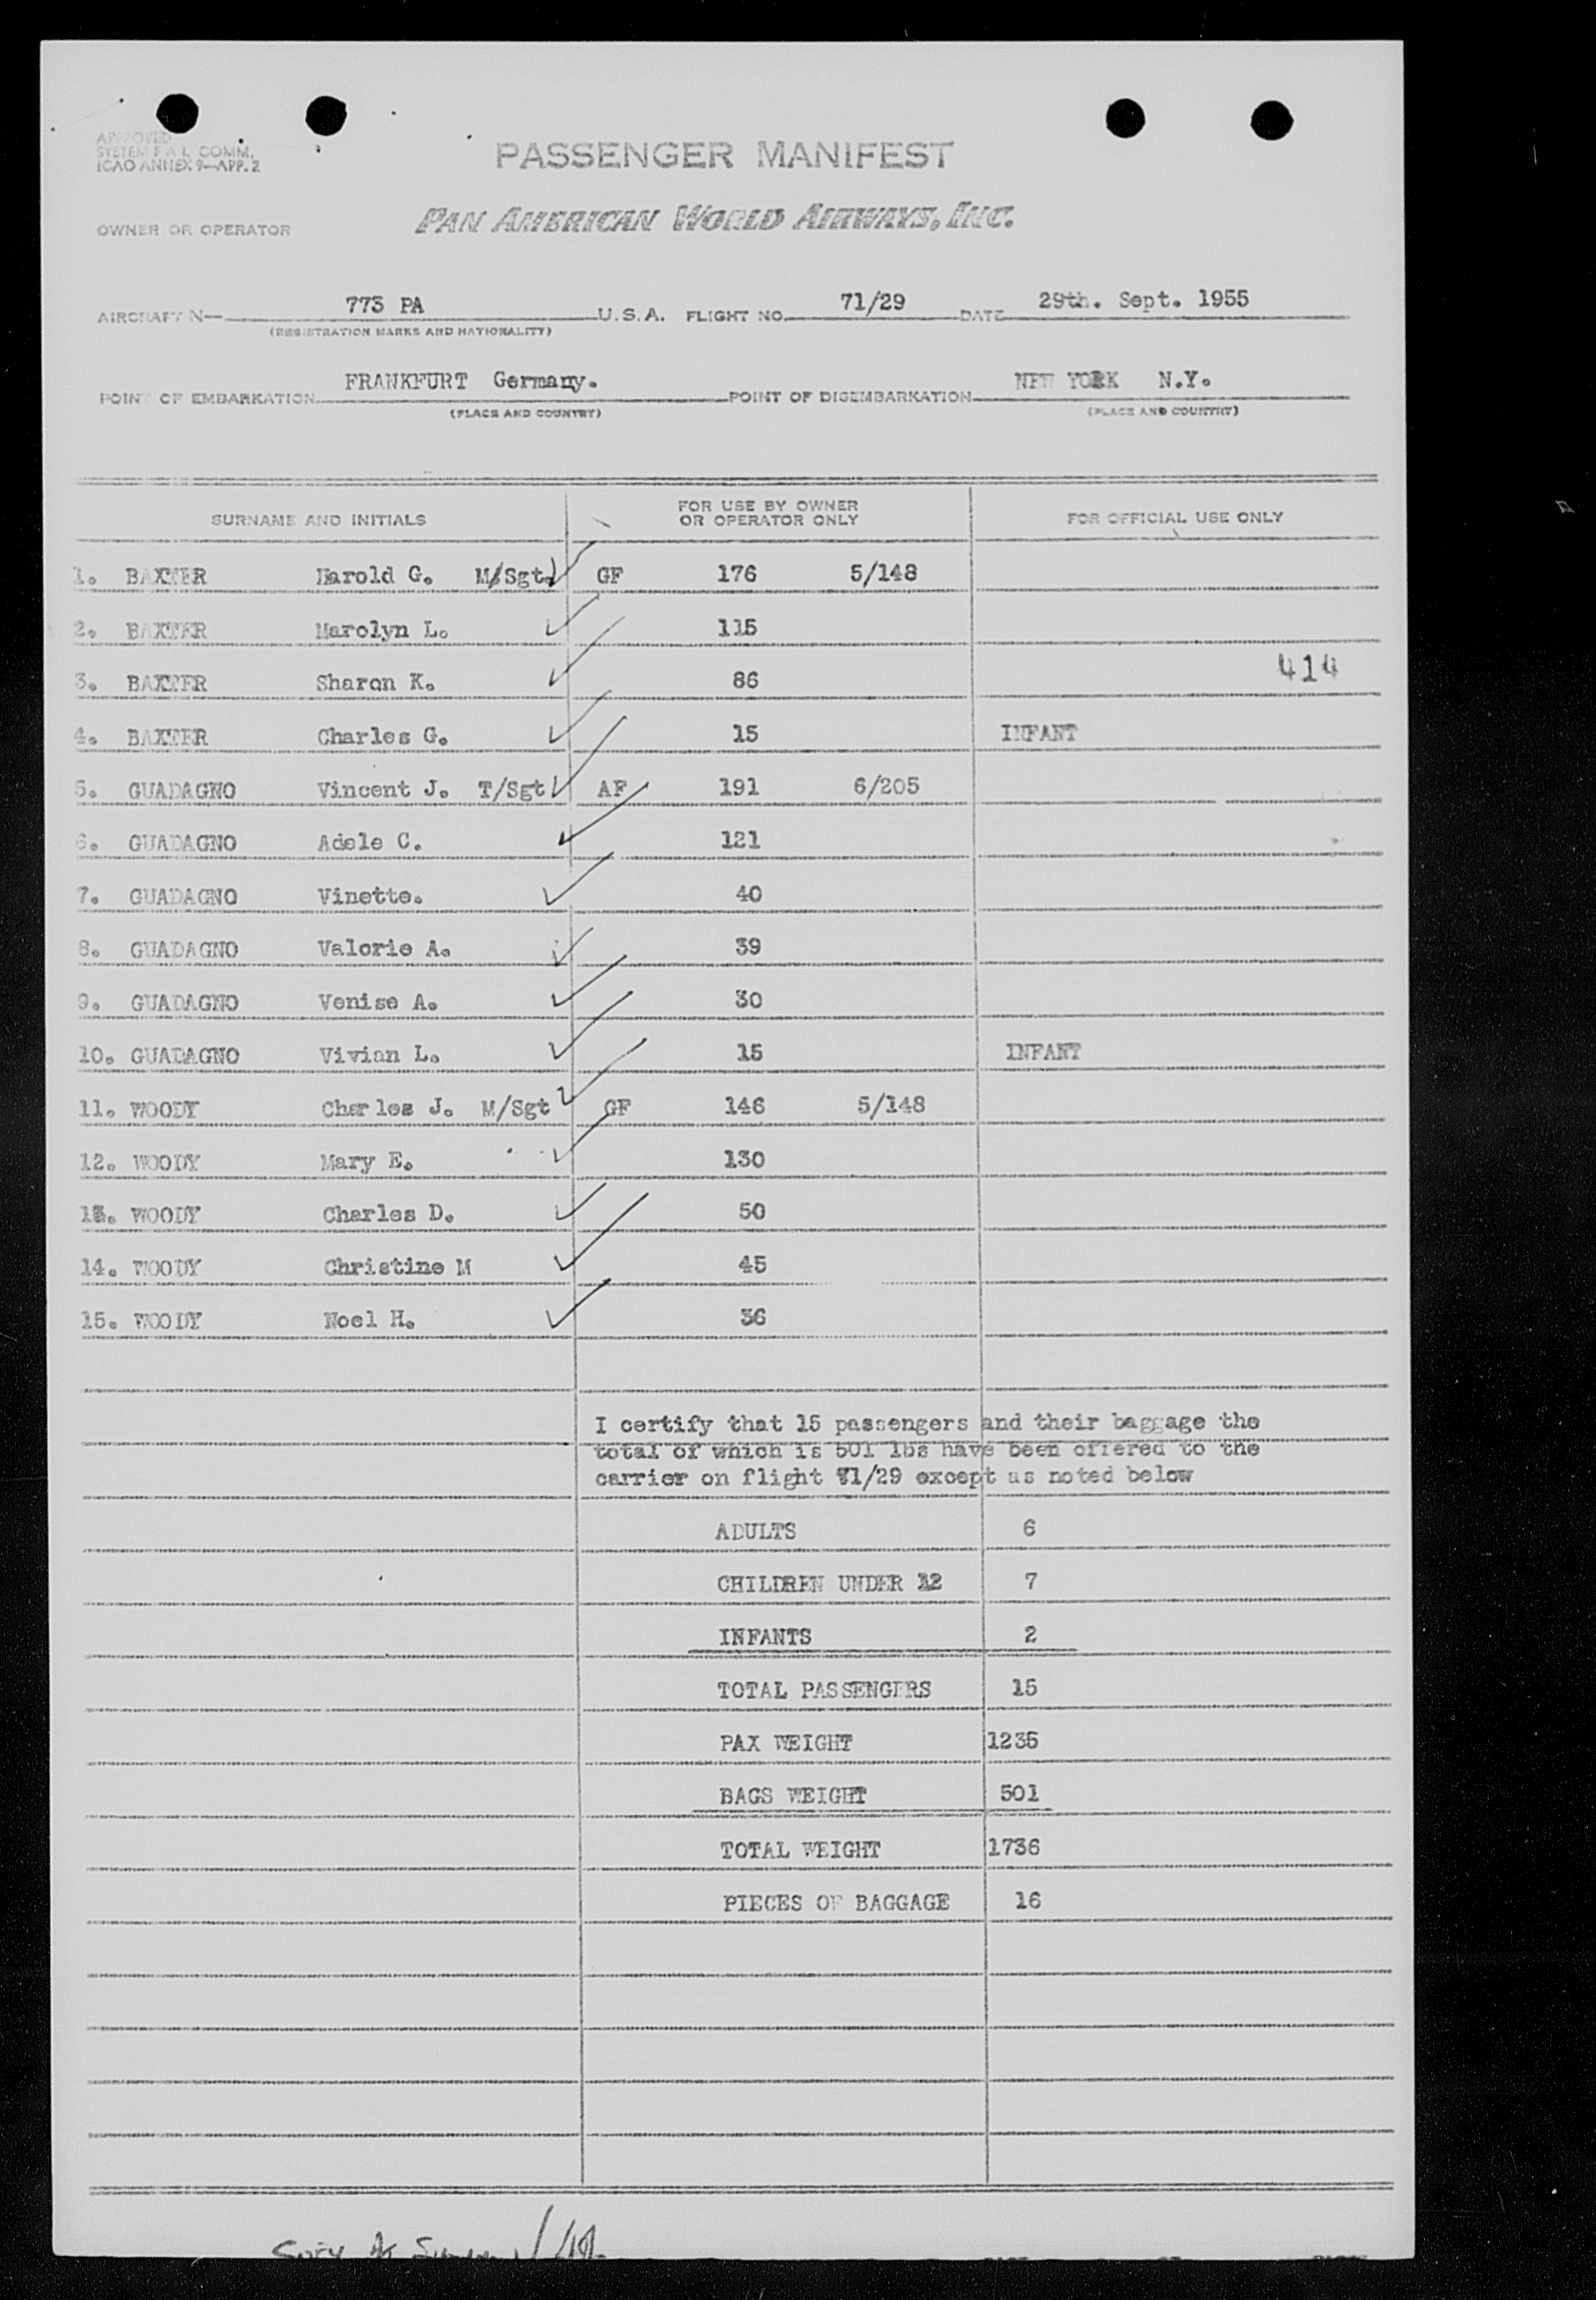 APPROVED
SYSTEM F.A.L. COMM.
ICAO ANNEX 9—APP. 2
PASSENGER MANIFEST
OWNER OR OPERATOR PAN AMERICAN WORLD AIRWAYS, INC.
AIRCRAFT N— 773 PA U.S.A. FLIGHT NO. 71/29 DATE 29th. Sept. 1955
(REGISTRATION MARKS AND NATIONALITY)
POINT OF EMBARKATION FRANKFURT Germany. POINT OF DISEMBARKATION NEW YORK N.Y.
(PLACE AND COUNTRY) (PLACE AND COUNTRY)
SURNAME AND INITIALS FOR USE BY OWNER OR OPERATOR ONLY FOR OFFICIAL USE ONLY
1. BAXTER Harold G. M/Sgt. GF 176 5/148
2. BAXTER Marolyn L. 115
3. BAXTER Sharon K. 86 414
4. BAXTER Charles G. 15 INFANT
5. GUADAGNO Vincent J. T/Sgt AF 191 6/205
6. GUADAGNO Adele C. 121
7. GUADAGNO Vinette. 40
8. GUADAGNO Valorie A. 39
9. GUADAGNO Venise A. 30
10. GUADAGNO Vivian L. 15 INFANT
11. WOODY Charles J. M/Sgt GF 146 5/148
12. WOODY Mary E. 130
13. WOODY Charles D. 50
14. WOODY Christine M 45
15. WOODY Noel H. 36
I certify that 15 passengers and their baggage the
total of which is 501 lbs have been offered to the
carrier on flight 71/29 except as noted below
ADULTS 6
CHILDREN UNDER 12 7
INFANTS 2
TOTAL PASSENGERS 15
PAX WEIGHT 1235
BAGS WEIGHT 501
TOTAL WEIGHT 1736
PIECES OF BAGGAGE 16